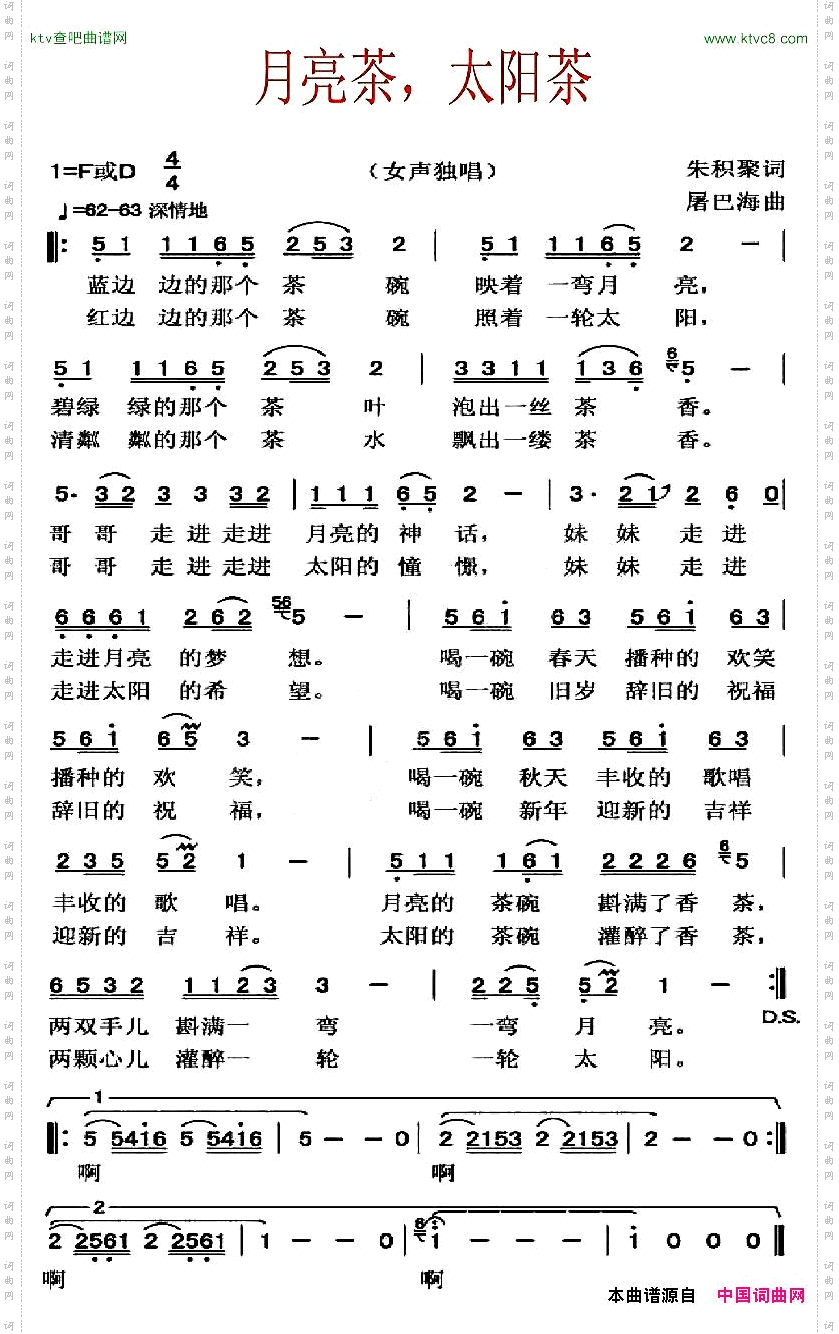 ktv查吧曲谱网 www.ktvc8.com
月亮茶，太阳茶
1=F或D 4/4 （女声独唱） 朱积聚词
♩=62-63 深情地 屠巴海曲
5 1 1 1 6 5 2 5 3 2 | 5 1 1 1 6 5 2 — |
蓝边 边的那个 茶 碗 映着 一弯月 亮，
红边 边的那个 茶 碗 照着 一轮太 阳．
5 1 1 1 6 5 2 5 3 2 | 3 3 1 1 1 3 6 6 5 — |
碧绿 绿的那个 茶 叶 泡出一丝 茶 香。
清粼 粼的那个 茶 水 飘出一缕 茶 香。
5· 3 2 3 3 3 2 | 1 1 1 6 5 2 — | 3· 2 1 2 6 0 |
哥 哥 走 进 走进 月亮的 神 话， 妹 妹 走 进
哥 哥 走 进 走进 太阳的 憧 憬， 妹 妹 走 进
6 6 6 1 2 6 2 56 5 — | 5 6 i 6 3 5 6 i 6 3 |
走进月亮 的梦 想。 喝一碗 春天 播种的 欢笑
走进太阳 的希 望。 喝一碗 旧岁 辞旧的 祝福
5 6 i 6 5 3 — | 5 6 i 6 3 5 6 i 6 3 |
播种的 欢 笑， 喝一碗 秋天 丰收的 歌唱
辞旧的 祝 福， 喝一碗 新年 迎新的 吉祥
2 3 5 5 2 1 — | 5 1 1 1 6 1 2 2 2 6 6 5 |
丰收的 歌 唱。 月亮的 茶碗 斟满了香 茶，
迎新的 吉 祥。 太阳的 茶碗 灌醉了香 茶，
6 5 3 2 1 1 2 3 3 — | 2 2 5 5 2 1 — :‖
D.S.
两双手儿 斟满一 弯 一弯 月 亮。
两颗心儿 灌醉一 轮 一轮 太 阳。
1
‖: 5 5 4 i 6 5 5 4 i 6 | 5 — — 0 | 2 2 1 5 3 2 2 1 5 3 | 2 — — 0 :‖
啊 啊
2
2 2 5 6 1 2 2 5 6 1 | 1 — — 0 | 6 i — — — | i 0 0 0 ‖
啊 啊
本曲谱源自 中国词曲网